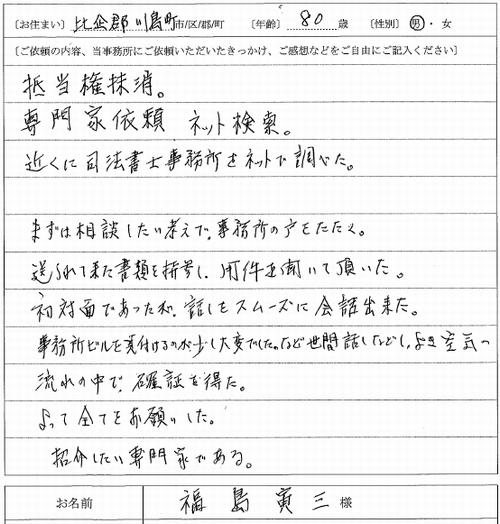 〔お住まい〕比企郡川島町市/区/郡/町 〔年齢〕80歳 〔性別〕男・女
〔ご依頼の内容、当事務所にご依頼いただいたきっかけ、ご感想などをご自由にご記入ください〕
抵当権抹消。
専門家依頼 ネット検索。
近くに司法書士事務所をネットで調べた。
まずは相談したい考えで、事務所の戸をたたく。
送られて来た書類を持参し、用件を聞いて頂いた。
初対面であったが、話しもスムーズに会話出来た。
事務所ビルを見付けるのが少し大変でした。など世間話しなどし、よき空気の
流れの中で、確証を得た。
よって全てをお願いした。
紹介したい専門家である。
お名前 福島寅三様